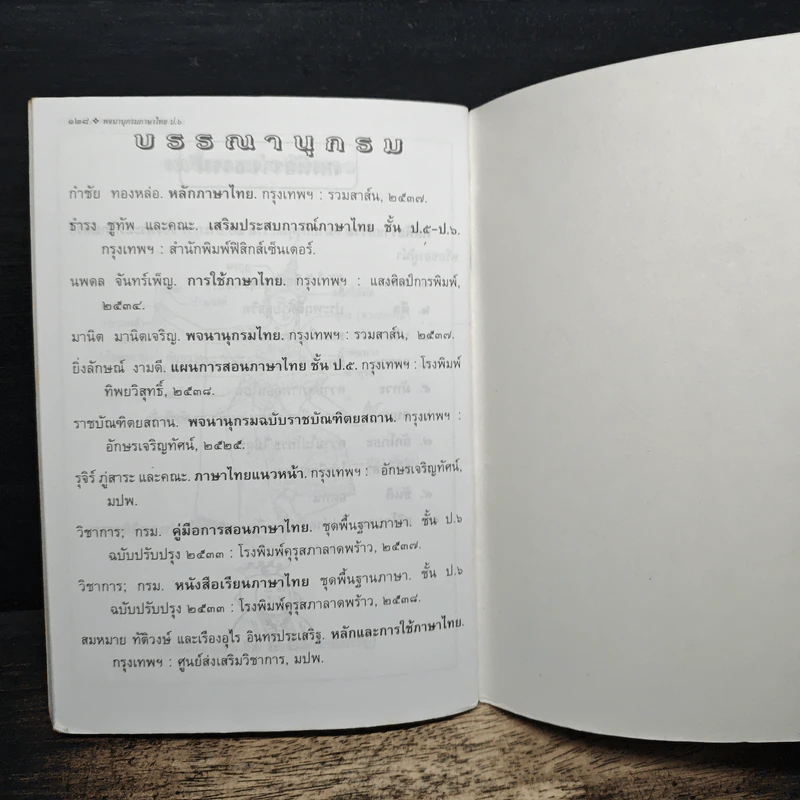 ๑๒๘ ❖ พจนานุกรมภาษาไทย ป.๖
บรรณานุกรม
กำชัย ทองหล่อ. หลักภาษาไทย. กรุงเทพฯ : รวมสาส์น, ๒๕๓๗.
ธำรง ชูทัพ และคณะ. เสริมประสบการณ์ภาษาไทย ชั้น ป.๕-ป.๖.
กรุงเทพฯ : สำนักพิมพ์ฟิสิกส์เซ็นเตอร์.
นพดล จันทร์เพ็ญ. การใช้ภาษาไทย. กรุงเทพฯ : แสงศิลป์การพิมพ์,
๒๕๓๔.
มานิต มานิตเจริญ. พจนานุกรมไทย. กรุงเทพฯ : รวมสาส์น, ๒๕๓๗.
ยิ่งลักษณ์ งามดี. แผนการสอนภาษาไทย ชั้น ป.๕. กรุงเทพฯ : โรงพิมพ์
ทิพยวิสุทธิ์, ๒๕๓๘.
ราชบัณฑิตยสถาน. พจนานุกรมฉบับราชบัณฑิตยสถาน. กรุงเทพฯ :
อักษรเจริญทัศน์, ๒๕๒๕.
รุจิร์ ภู่สาระ และคณะ. ภาษาไทยแนวหน้า. กรุงเทพฯ : อักษรเจริญทัศน์,
มปพ.
วิชาการ; กรม. คู่มือการสอนภาษาไทย. ชุดพื้นฐานภาษา. ชั้น ป.๖
ฉบับปรับปรุง ๒๕๓๓ : โรงพิมพ์คุรุสภาลาดพร้าว, ๒๕๓๗.
วิชาการ; กรม. หนังสือเรียนภาษาไทย ชุดพื้นฐานภาษา. ชั้น ป.๖
ฉบับปรับปรุง ๒๕๓๓ : โรงพิมพ์คุรุสภาลาดพร้าว, ๒๕๓๘.
สมหมาย ทัติวงษ์ และเรืองอุไร อินทรประเสริฐ. หลักและการใช้ภาษาไทย.
กรุงเทพฯ : ศูนย์ส่งเสริมวิชาการ, มปพ.